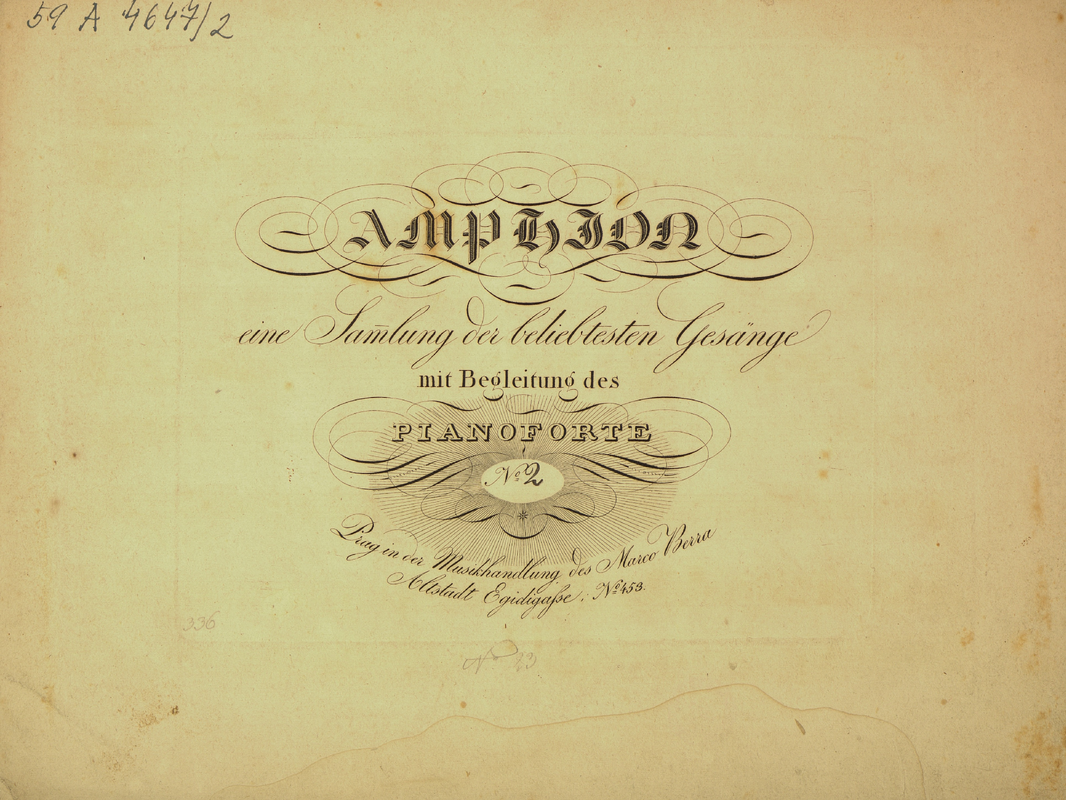 59 A 4647/2
AMPHION
eine Sam̅lung der beliebtesten Gesänge
mit Begleitung des
PIANOFORTE
No 2
Prag in der Musikhandlung des Marco Berra
Altstadt Egidigaſse: No 453.
336
No 23